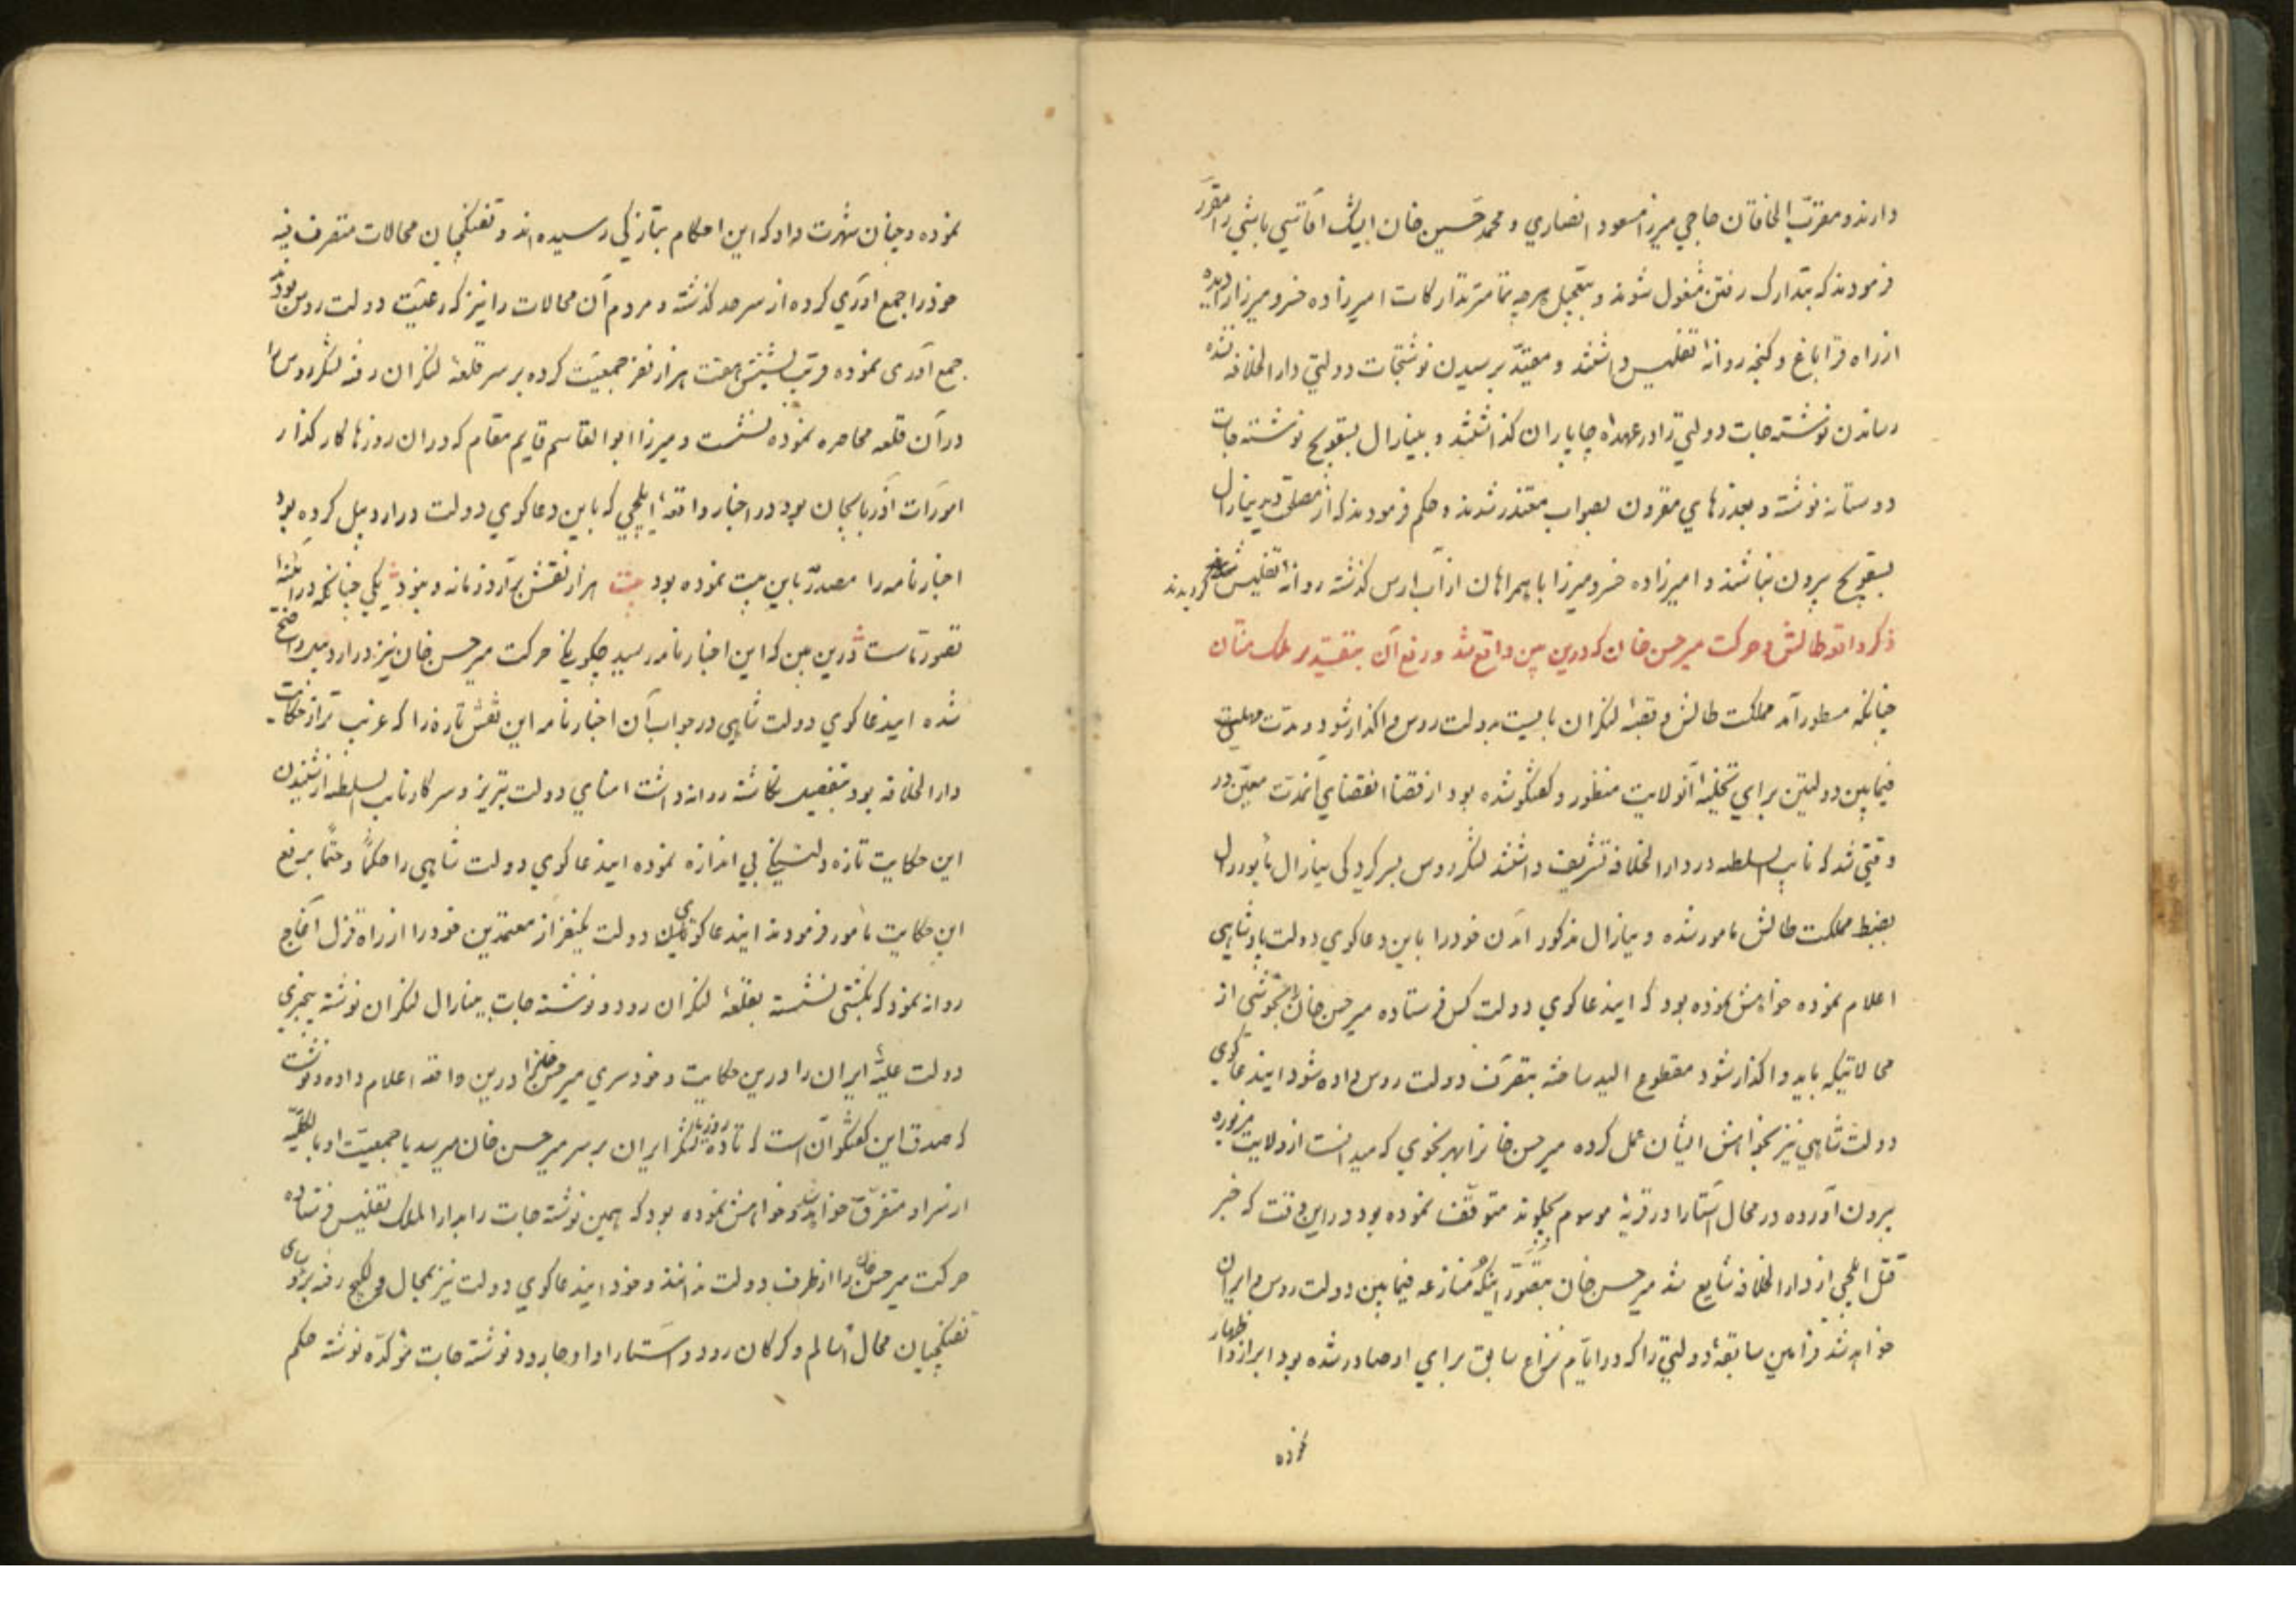 دارند و مقرب الخاقان حاجی میرزا مسعود انصاری و محمد حسین خان ایشک آقاسی باشی را مقرر
فرمودند که بتدارک رفتن مشغول شوند و بتعجیل هر چه تمامتر تدارکات امیرزاده خسرو میرزا را دیده
از راه قراباغ و گنجه روانهٔ تفلیس داشتند و مقید برسیدن نوشتجات دولتی دار الخلافه نشده
رساندن نوشته جات دولتی را در عهدهٔ چاپاران گذاشتند و بینارال بسقویچ نوشته جات
دوستانه نوشته و بعذرهای مقرون بصواب معتذر شدند و حکم فرمودند که از مصلحت دید ینارال
بسقویچ بیرون نباشند و امیرزاده خسرو میرزا با همراهان از آب ارس گذشته روانهٔ تفلیس گردیدند
ذکر واقعه طالش و حرکت میر حسن خان که درین بین واقع شد و رفع آن
چنانکه مسطور آمد مملکت طالش و قصبهٔ لنکران بایست بدولت روس واگذار شود و مدت مهلت
فیمابین دولتین برای تخلیهٔ آنولایت منظور و گفتگو شده بود از قضا انقضای آنمدت معین در
وقتی شد که نایب السلطنه در دار الخلافه تشریف داشتند لشکر روس بسرکردکی ینارال
بضبط مملکت طالش مامور شده و ینارال مذکور آمدن خود را باین دعاگوی دولت پادشاهی
اعلام نموده خواهش نموده بود که ایندعاگوی دولت کس فرستاده میر حسن خان را بخوشی از
محالاتیکه باید واگذار شود مقطوع الید ساخته بتصرف دولت روس داده شود ایندعاگوی
دولت شاهی نیز بخواهش ایشان عمل کرده میر حسن خانرا بهر نحوی که میدانست از ولایت مزبوره
بیرون آورده در محال آستارا در قریهٔ موسوم بچلوند متوقف نموده بود در این وقت که خبر
قتل ایلچی از دار الخلافه شایع شد میر حسن خان بتصور اینکه منازعه فیمابین دولت روس و ایران
خواهد شد فرامین سابقهٔ دولتی را که در ایام نزاع سابق برای او صادر شده بود ابراز و اظهار
نموده
نموده و چنان شهرت داد که این احکام بتازکی رسیده اند و تفنکچیان محالات متصرف فیه
خود را جمع آوری کرده از سرحد گذشته و مردم آن محالات را نیز که رعیت دولت روس بود
جمع آوری نموده قریب بشش هفت هزار نفر جمعیت کرده بر سر قلعهٔ لنکران رفته لشکر روس را
در آن قلعه محاصره نموده نشست و میرزا ابو القاسم قایم مقام که در ان روزها کارگذار
امورات آذربایجان بود در اخبار واقعهٔ ایلچی که باین دعاگوی دولت در اردبیل کرده بود
اخبارنامه را مصدر باین بیت نموده بود بیت هزار نقش برآرد زمانه و نبود یکی چنانکه در آئینهٔ
تصور ماست درین بین که این اخبارنامه رسید چگونگی حرکت میر حسن خان نیز در اردبیل واضح
شده ایندعاگوی دولت شاهی در جواب آن اخبارنامه این نقش تازه را که غریب تر از حکایت
دار الخلافه بود بتفصیل نگاشته روانه داشت امنای دولت تبریز و سرکار نایب السلطنه از شنیدن
این حکایت تازه دلتنگی بی اندازه نموده ایندعاگوی دولت شاهی را حکماً و حتماً برفع
این حکایت مأمور فرمودند ایندعاگوی دولت یکنفر از معتمدین خود را از راه قزل آغاج
روانه نمود که بکشتی نشسته بقلعهٔ لنکران رود و نوشته جات بینارال لنکران نوشته بیخبری
دولت علیهٔ ایران را درین حکایت و خودسری میر حسن خانرا درین واقعه اعلام داده و نوشت
که صدق این گفتگو آن است که تا ده روز دیگر لشکر ایران بر سر میر حسن خان میرسد یا جمعیت او بالکلیه
از سر او متفرق خواهد شد و خواهش نموده بود که همین نوشته جات را بدار الملک تفلیس فرستاده
حرکت میر حسن خان را از طرف دولت ندانند و خود ایندعاگوی دولت نیز بمحال ولکیج رفته برؤسای
تفنکچیان محال اسالم و کرکان رود و آستارا و اوجارود نوشته جات مؤکده نوشته حکم